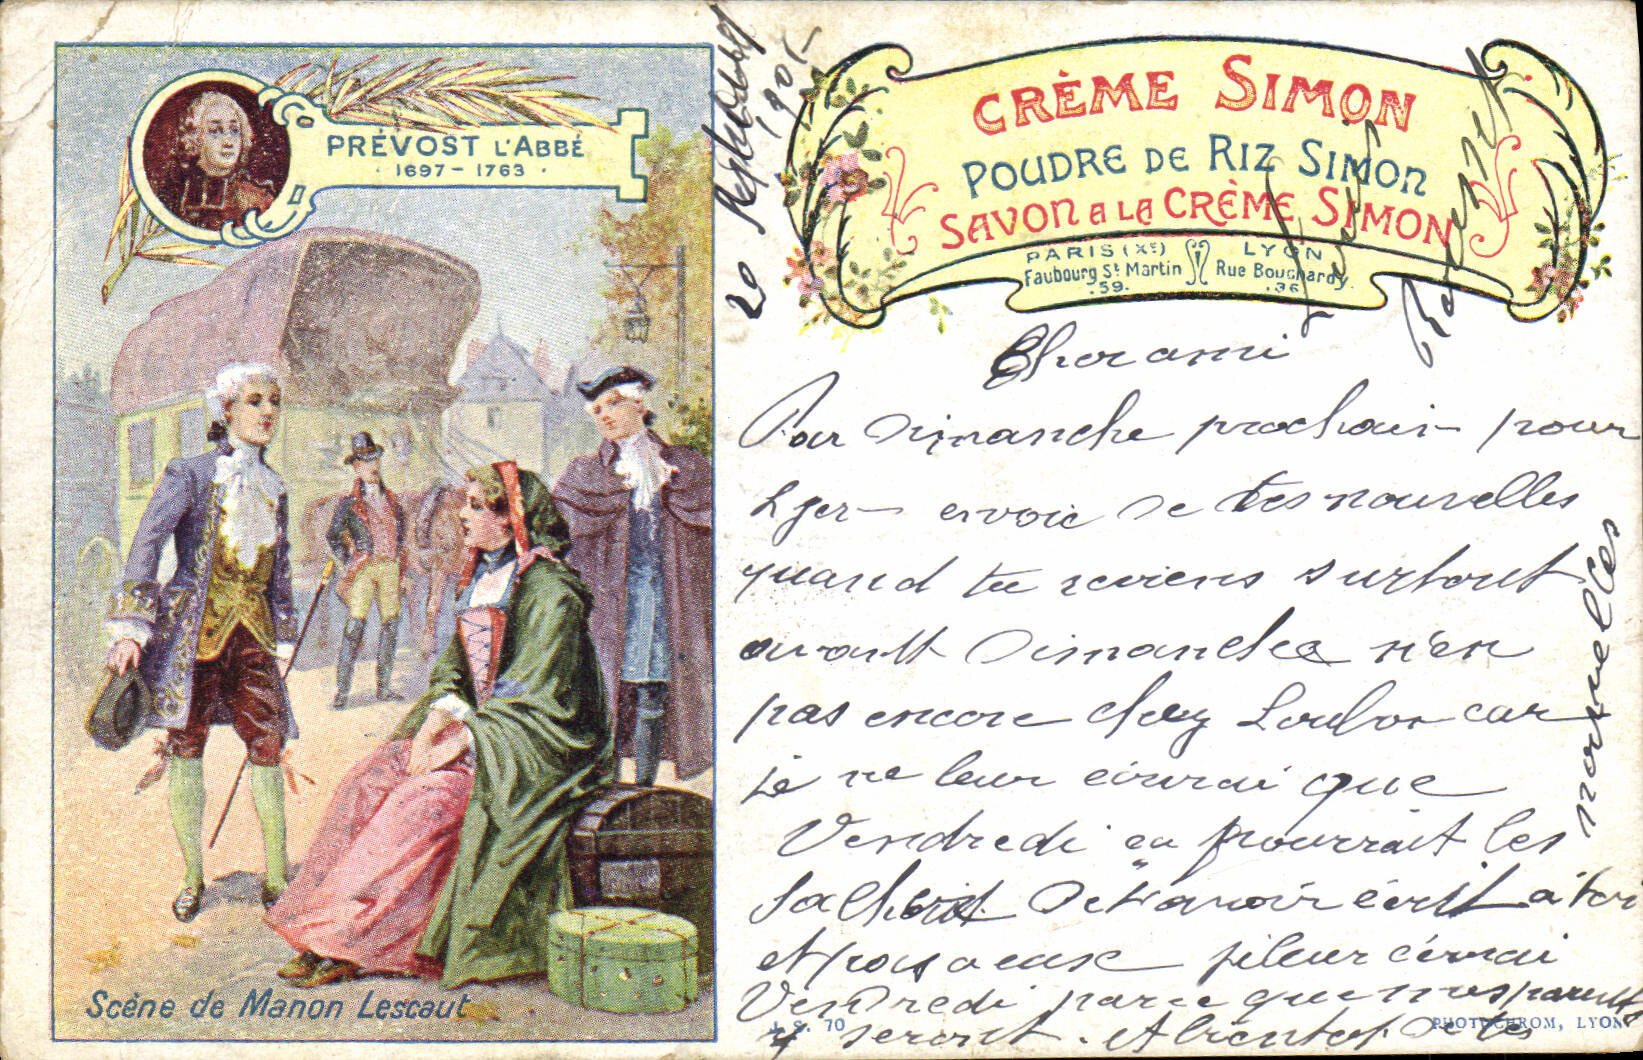 PRÉVOST L'ABBÉ
1697 - 1763
Scène de Manon Lescaut
20 1905
CRÈME SIMON
POUDRE DE RIZ SIMON
SAVON A LA CRÈME SIMON
PARIS (Xe)
Faubourg St Martin
.59.
LYON
Rue Bouchardy
.36.
Cher ami
Par Dimanche prochain pour
Lyon envoie de tes nouvelles
quand tu reviens surtout
avant Dimanche n'en
pas encore chez car
je ne leur écrirai que
Vendredi ça pourrait les
de t'avoir écrit à toi
et pas a eux je leur écrirai
Vendredi parce que mes parents
y seront. A bientot de tes
nouvelles
J. S. 70
PHOTOCHROM, LYON